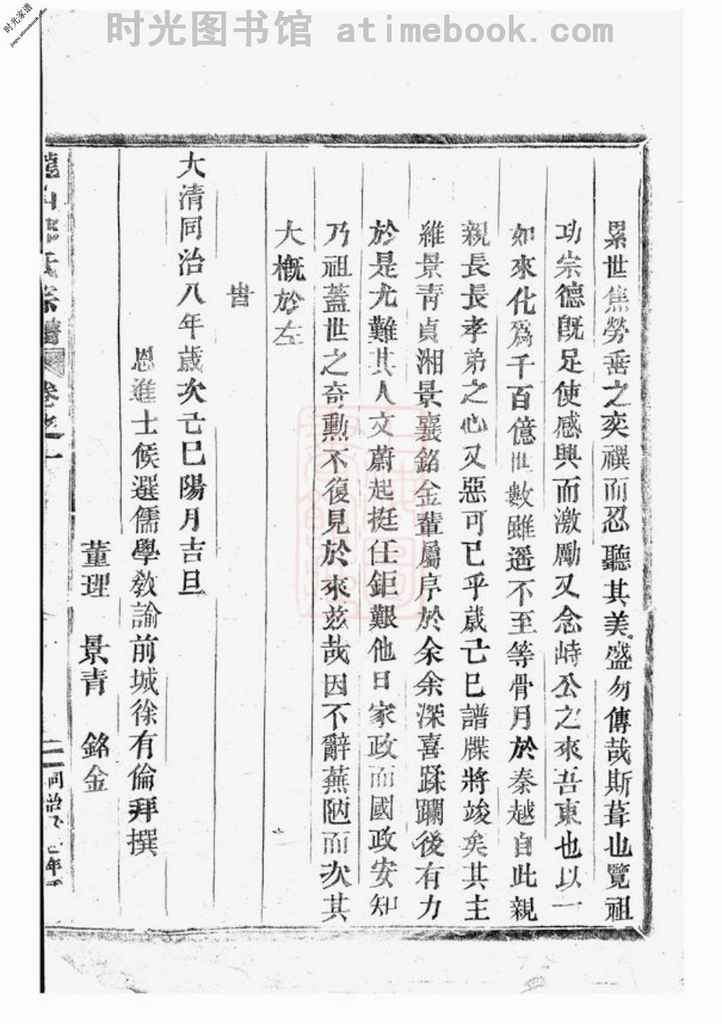 时光图书馆 atimebook.com
时光家谱
累世焦勞垂之奕禩而忍聽其美盛勿傳哉斯葺也覽祖
功宗德既足使感興而激勵又念峙公之來吾東也以一
如來化為千百億世數雖遥不至等骨月於秦越自此親
親長長孝弟之心又惡可已乎歲己巳譜牒將竣矣其主
維景青貞湘景襄銘金輩屬序於余余深喜蹂躪後有力
於是尤難其人文蔚起挺任鉅艱他日家政而國政安知
乃祖蓋世之奇勲不復見於來兹哉因不辭蕪陋而次其
大槪於左
旹
大清同治八年歲次己巳陽月吉旦
恩進士候選儒學教諭前城徐有倫拜撰
董理 景青 銘金
氏宗譜 卷之一
二 同治 年